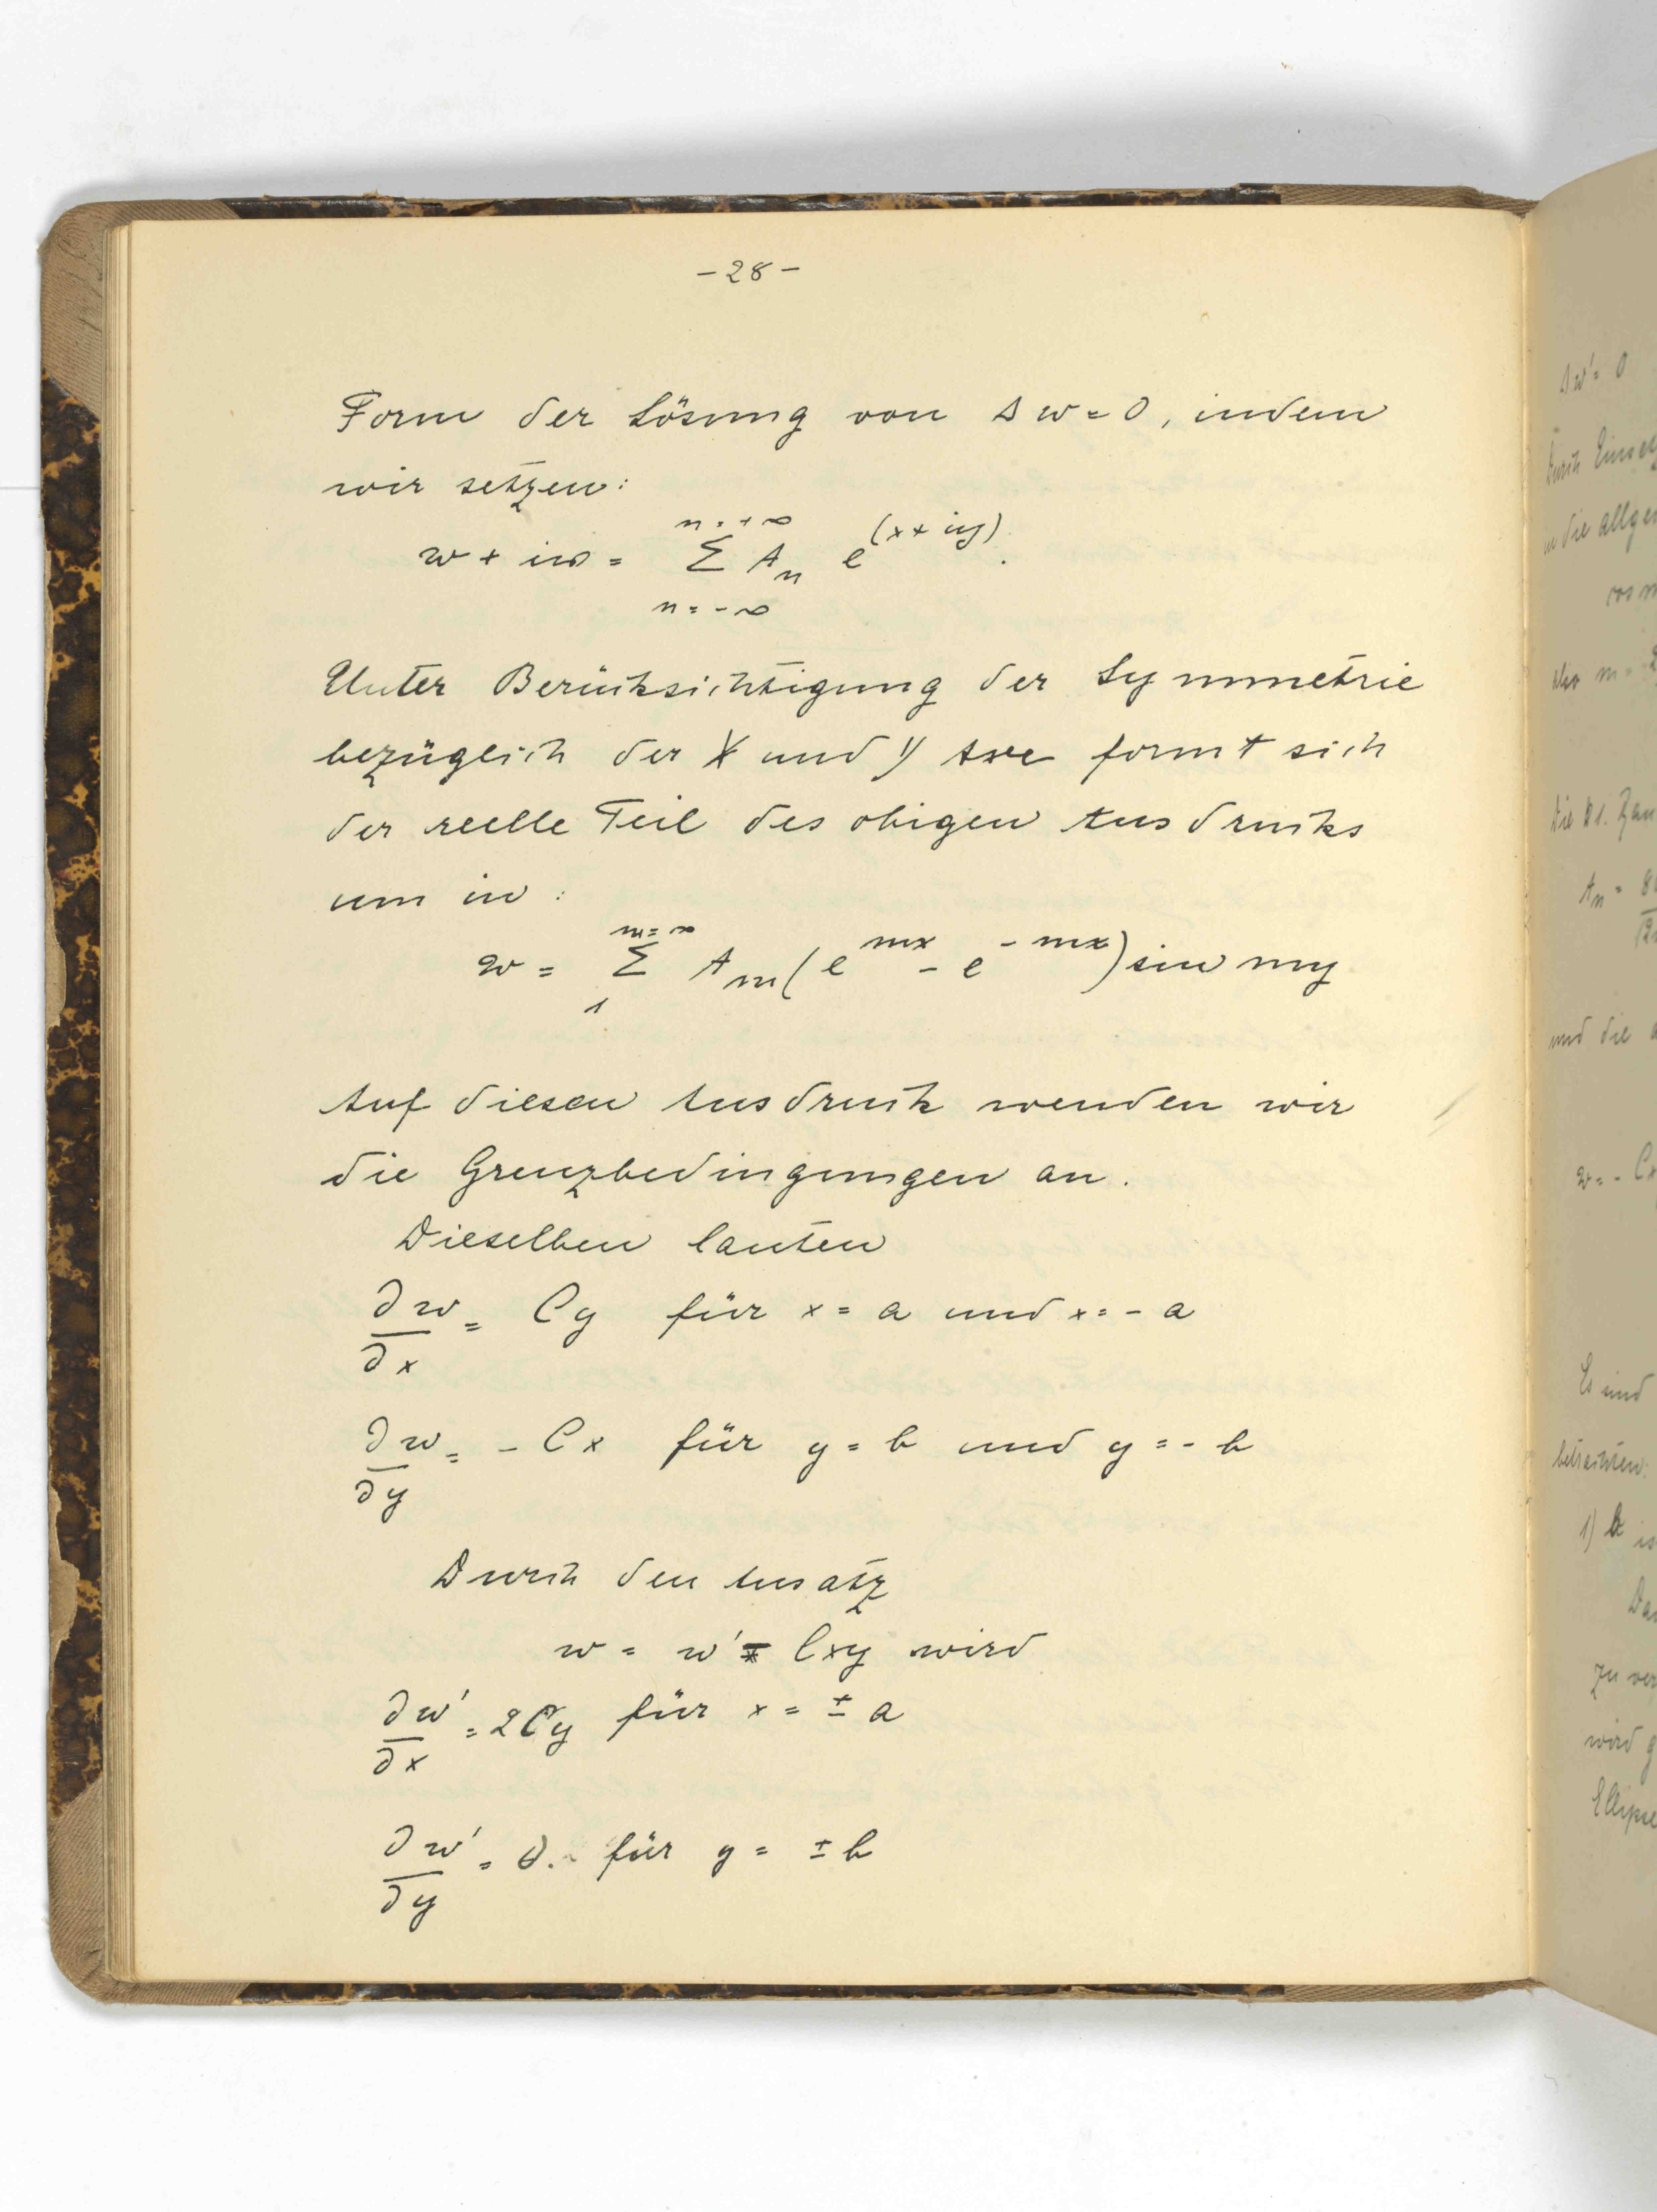 -28-
Form der Lösung von Δw=0, indem
wir setzen:
n=+∞
w + iω = Σ A_n e^(x+iy).
n=-∞
Unter Berücksichtigung der Symmetrie
bezüglich der X und Y Axe formt sich
der reelle Teil des obigen Ausdrucks
um in:
m=∞
w = Σ A_m (e^mx - e^-mx) sin my
1
Auf diesen Ausdruck wenden wir
die Grenzbedingungen an.
Dieselben lauten
∂w/∂x = Cy für x = a und x = - a
∂w/∂y = - Cx für y = b und y = - b
Durch den Ansatz
w = w' - Cxy wird
∂w'/∂x = 2Cy für x = ± a
∂w'/∂y = 0. für y = ± b
Δw'= 0
in die
Die
und die
w = - Cx
Es sind
betrachten:
1) b is
zu ver
wird g
Ellipse